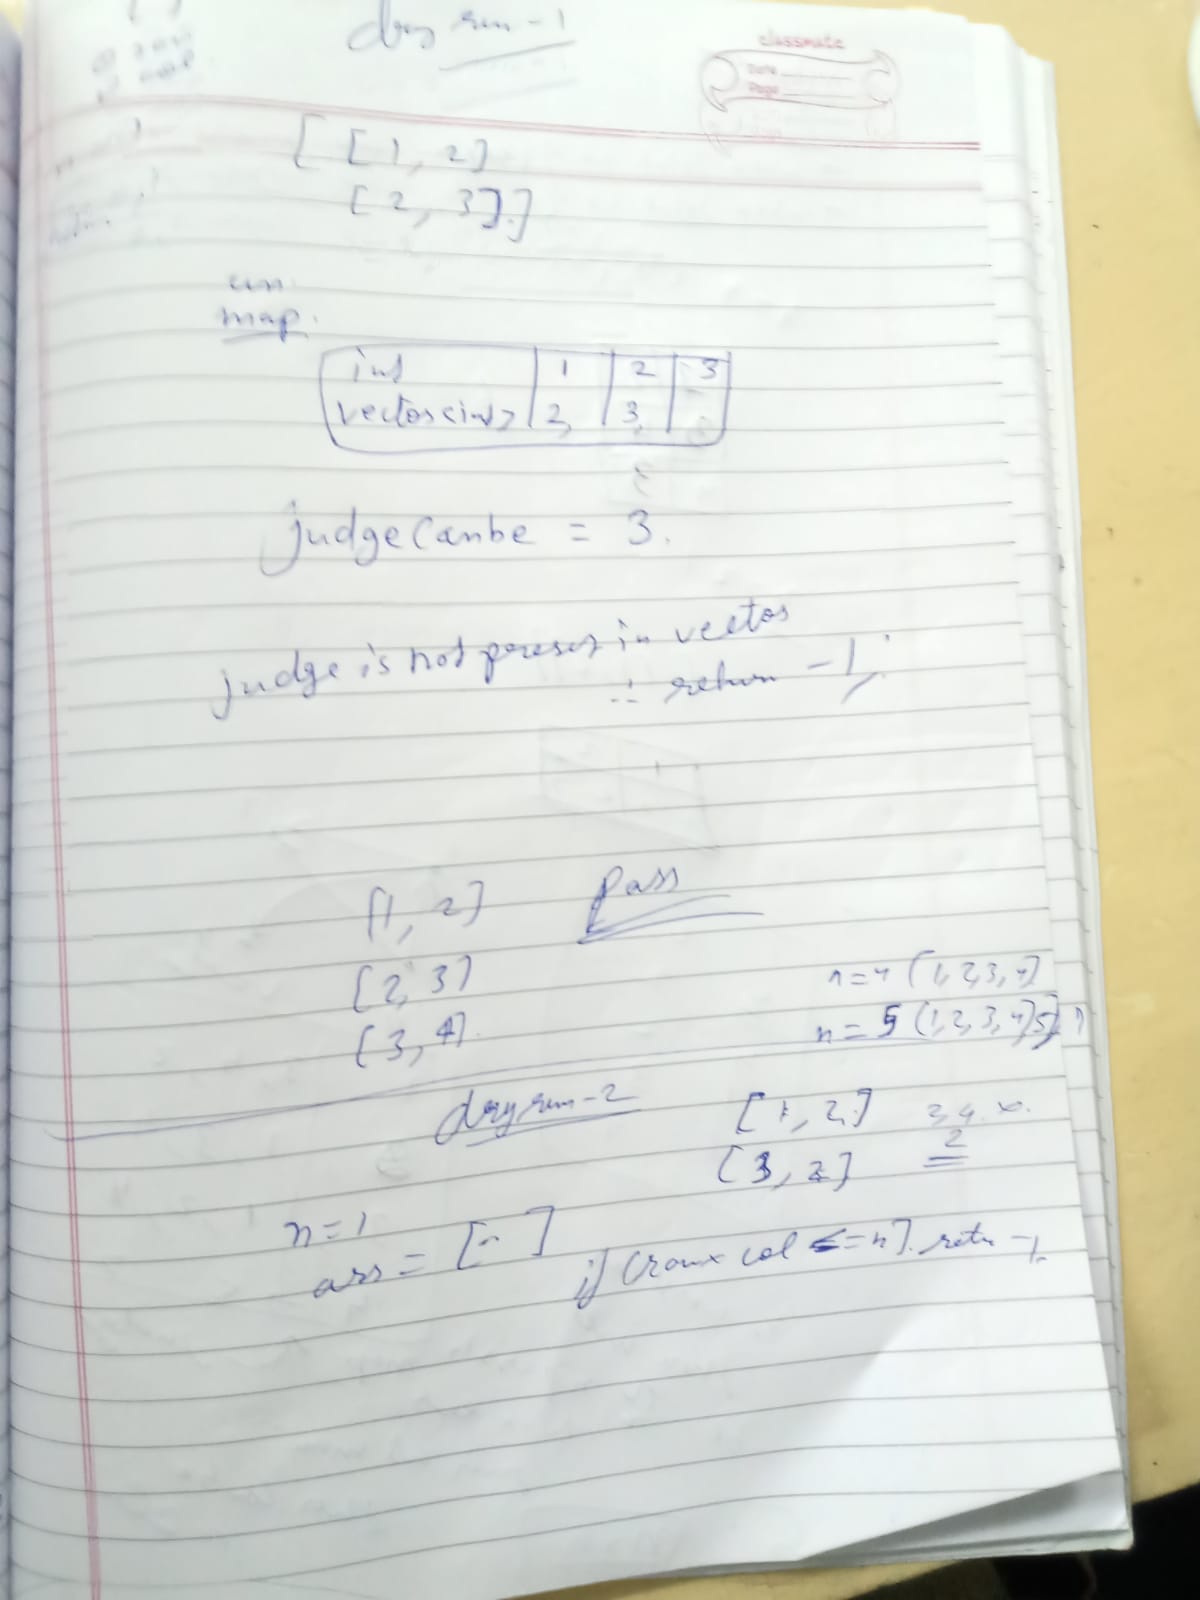 dry run - 1
classmate
Date
Page
[ [1, 2]
[2, 3].]
un.
map.
int 1 2 3
vector<int> 2, 3,
judgeCanbe = 3.
judge is not present in vector
∴ return -1;
[1, 2] Pass
[2, 3]
[3, 4].
n=4 (1, 2, 3, 4]
n = 5 (1, 2, 3, 4, 5]
dry run - 2
[1, 2]
[3, 2]
2
n = 1
arr = [ ]
if (row x col <= n] return -1.